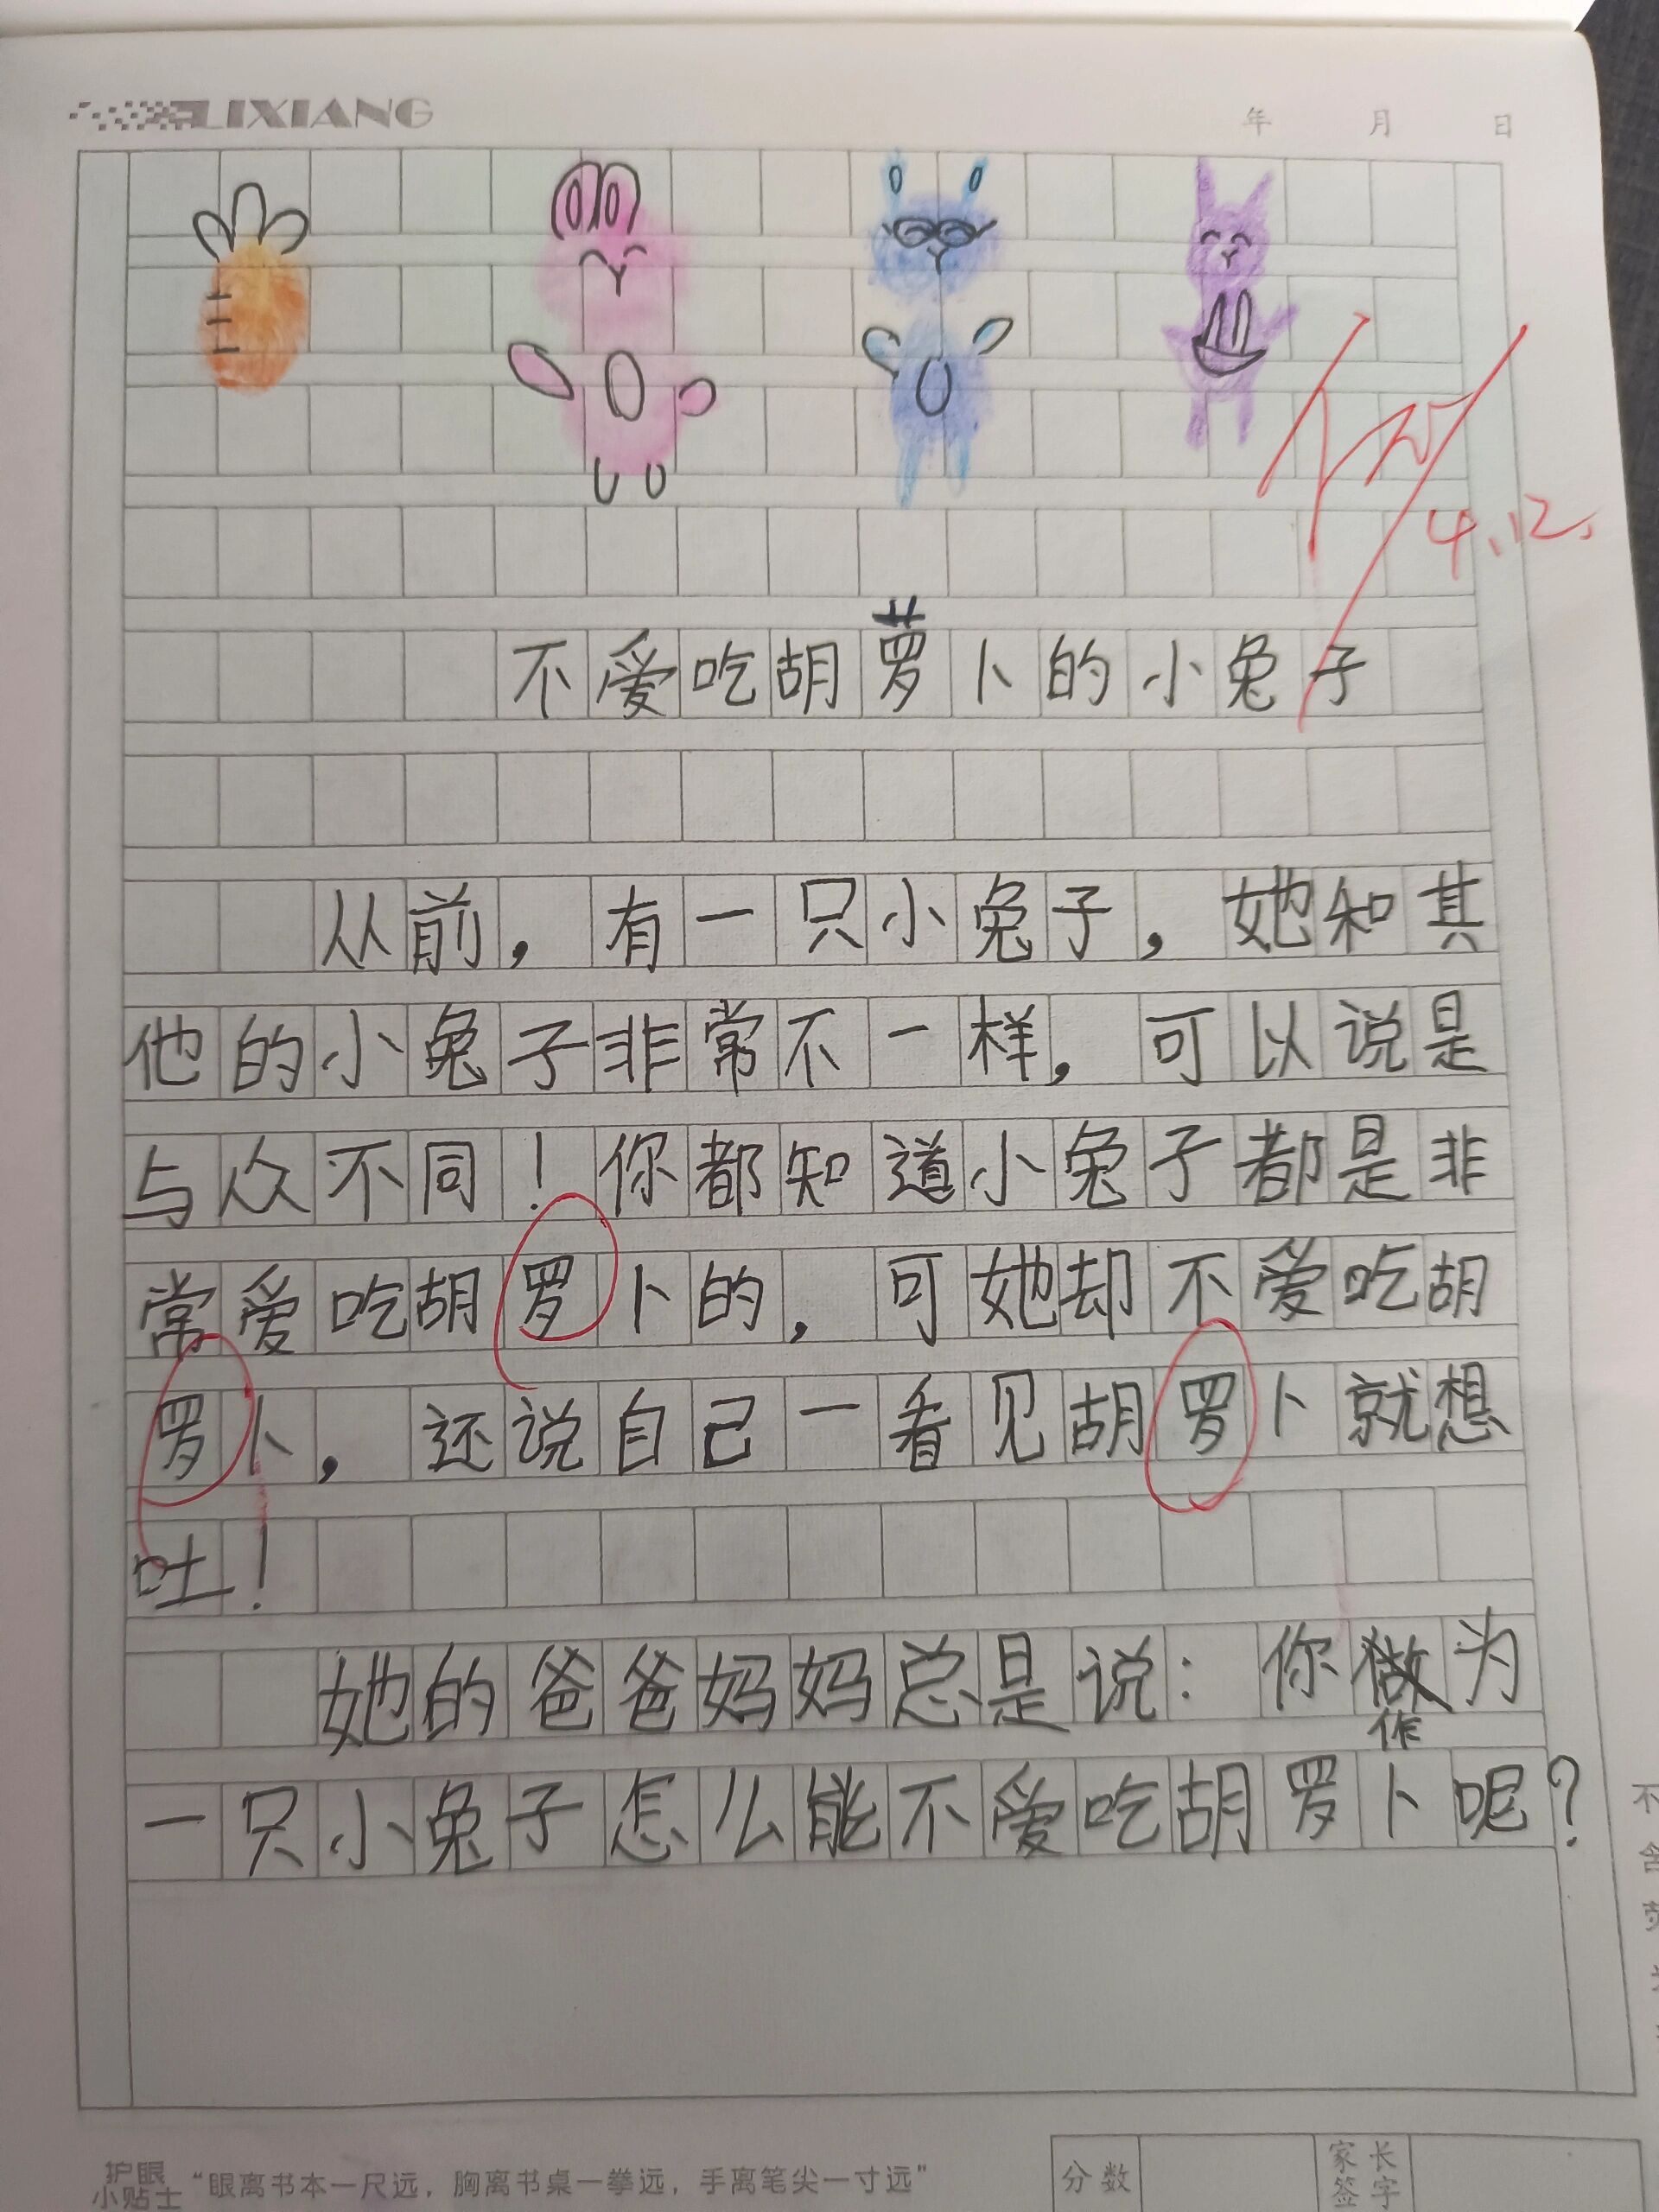 LIXIANG
年 月 日
4.12.
不爱吃胡萝卜的小兔子
从前，有一只小兔子，她和其
他的小兔子非常不一样，可以说是
与众不同！你都知道小兔子都是非
常爱吃胡罗卜的，可她却不爱吃胡
罗卜，还说自己一看见胡罗卜就想
吐！
她的爸爸妈妈总是说：你做为
作
一只小兔子怎么能不爱吃胡罗卜呢？
护眼
小贴士
“眼离书本一尺远，胸离书桌一拳远，手离笔尖一寸远”
分数
家长
签字